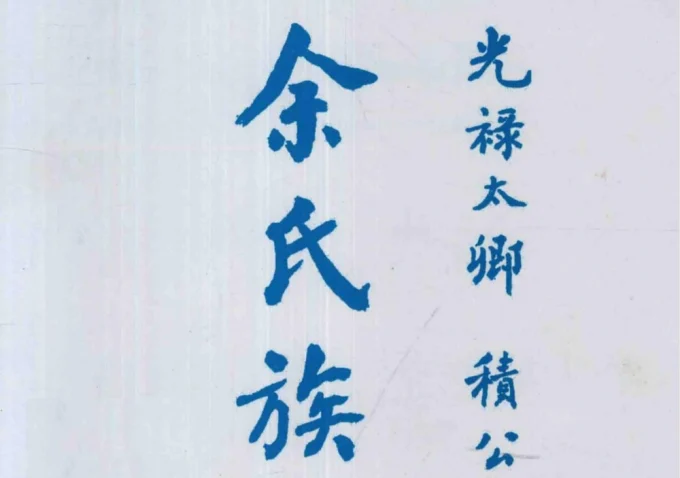 光禄太卿 積公
余氏族